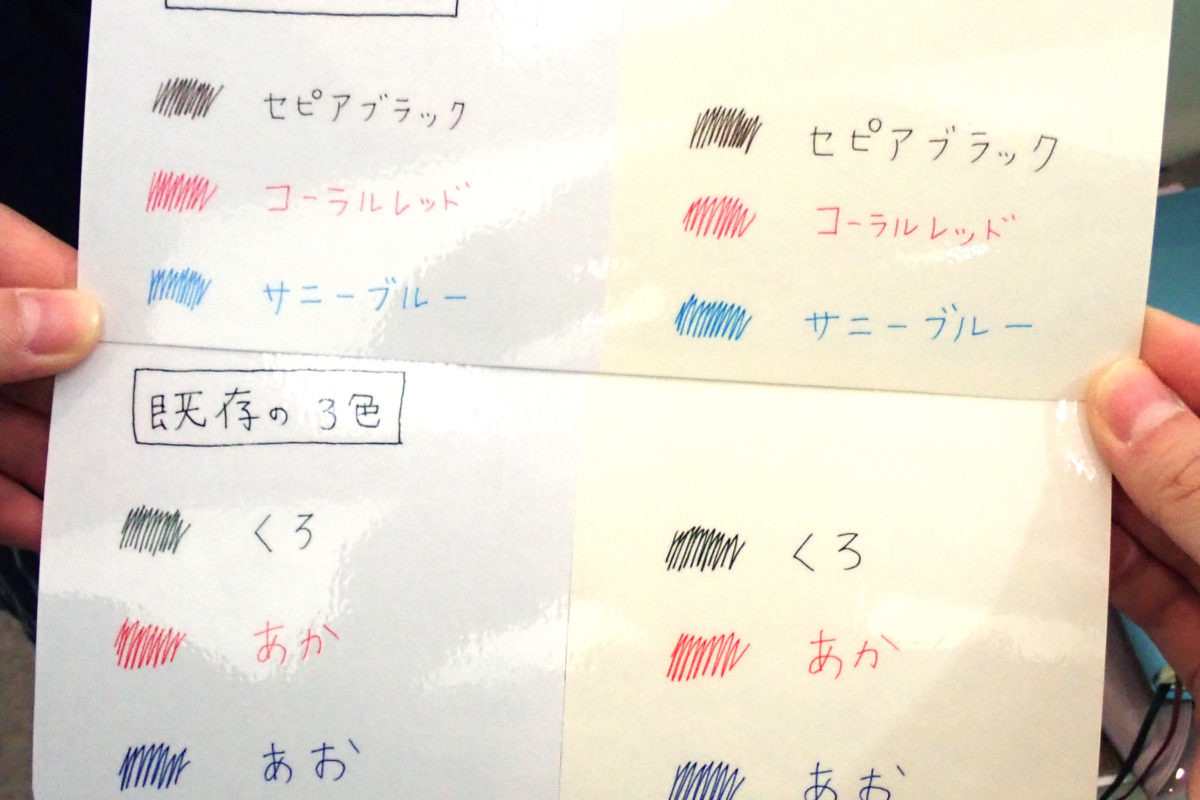 セピアブラック
コーラルレッド
サニーブルー
セピアブラック
コーラルレッド
サニーブルー
既存の3色
くろ
あか
あお
くろ
あか
あお